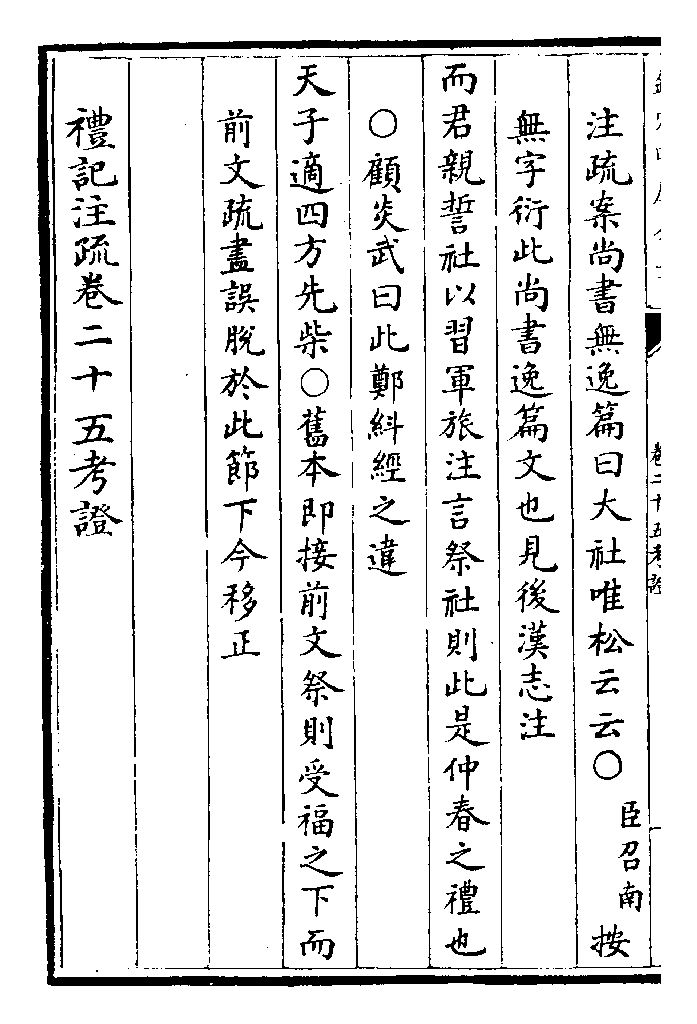 注疏案尚書無逸篇曰大社唯松云云○臣召南按
無字衍此尚書逸篇文也見後漢志注
而君親誓社以習軍旅注言祭社則此是仲春之禮也
○顧炎武曰此鄭糾經之違
天子適四方先柴○舊本即接前文祭則受福之下而
前文疏盡誤脫於此節下今移正
禮記注疏卷二十五考證
卷二十五考證